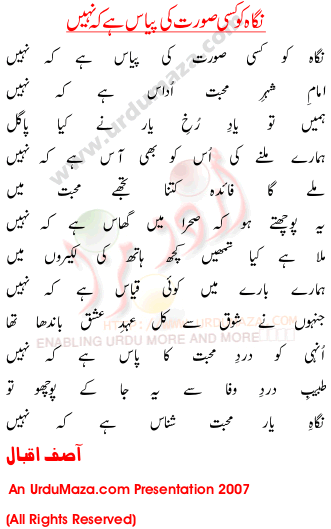 نگاہ کو کسی صورت کی پیاس ہے کہ نہیں
نگاہ کو کسی صورت کی پیاس ہے کہ نہیں
امامِ شہرِ محبت اُداس ہے کہ نہیں
ہمیں تو یادِ رُخِ یار نے کیا پاگل
ہمارے ملنے کی اُس کو بھی آس ہے کہ نہیں
ملے گا فائدہ کتنا تجھے محبت میں
یہ پوچھتے ہو کہ صحرا میں گھاس ہے کہ نہیں
ملا ہے کیا تمھیں کچھ ہاتھ کی لکیروں میں
ہمارے بارے میں کوئی قیاس ہے کہ نہیں
جنہوں نے شوق سے کل عہدِ عشق باندھا تھا
اُنہی کو دردِ محبت کا پاس ہے کہ نہیں
طبیبِ دردِ وفا سے یہ جا کے پوچھو تو
نگاہِ یار محبت شناس ہے کہ نہیں
آصف اقبال
An UrduMaza.com Presentation 2007
(All Rights Reserved)
www.urdumaza.com
اُردو مزا
HTTP://WWW.URDUMAZA.COM
ENABLING URDU MORE AND MORE